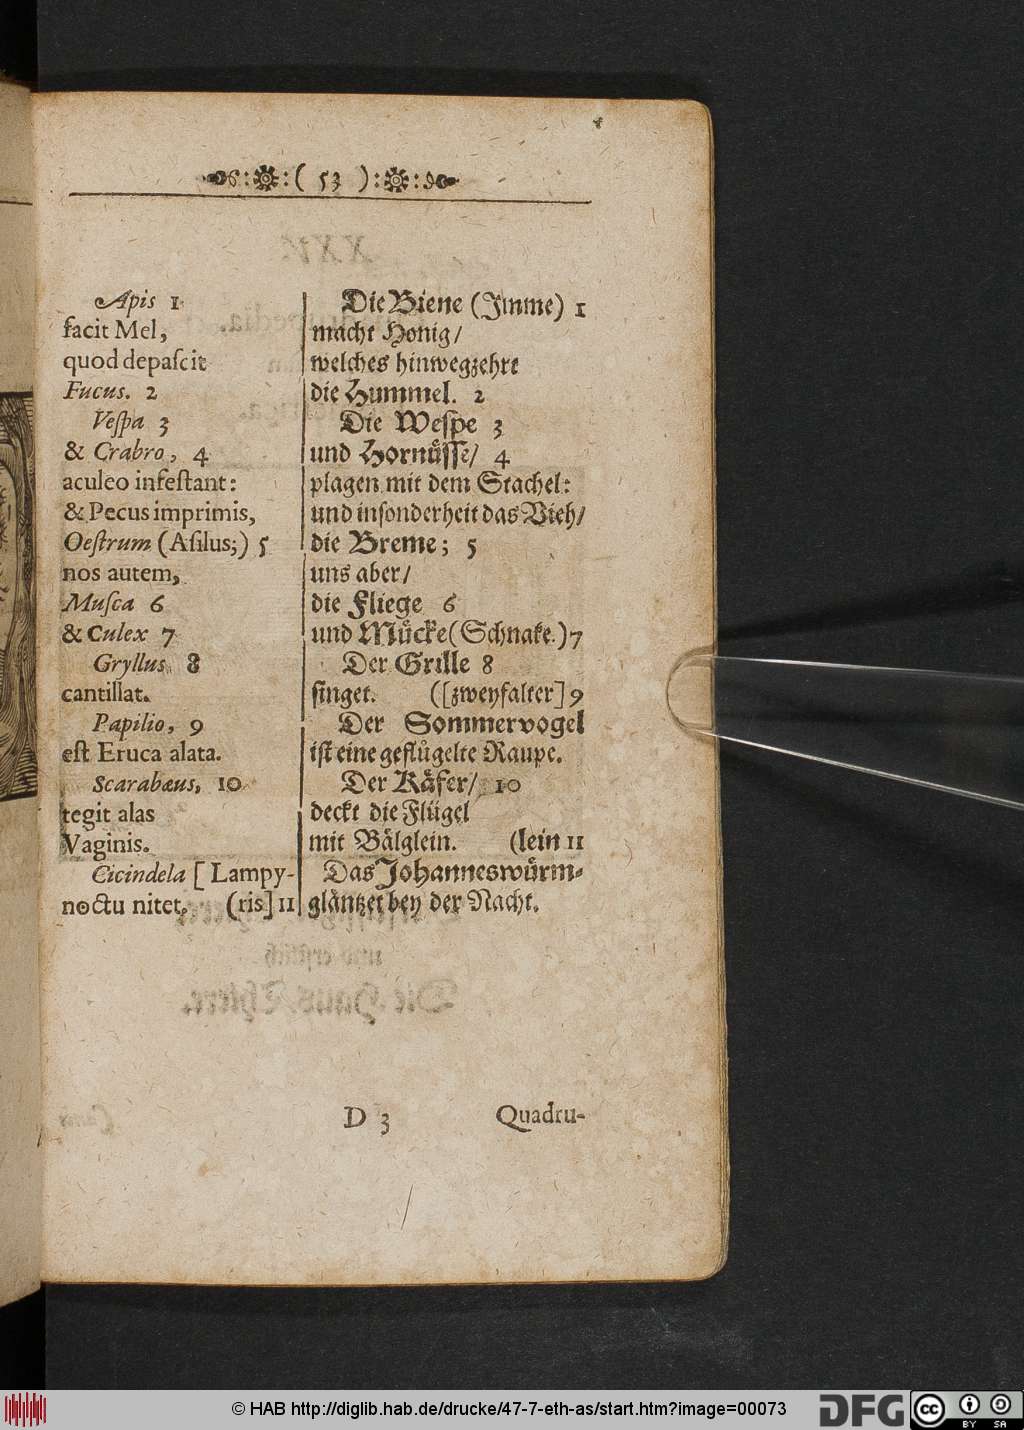 ( 53 )
Apis 1
facit Mel,
quod depaſcit
Fucus. 2
Veſpa 3
& Crabro, 4
aculeo infeſtant:
& Pecus imprimis,
Oeſtrum (Aſilus;) 5
nos autem,
Muſca 6
& Culex 7
Gryllus 8
cantillat.
Papilio, 9
eſt Eruca alata.
Scarabæus, 10
tegit alas
Vaginis.
Cicindela [Lampy-
noctu nitet. (ris] 11
Die Biene (Imme) 1
macht Honig/
welches hinwegzehrt
die Hummel. 2
Die Weſpe 3
und Hornüſſe/ 4
plagen mit dem Stachel:
und inſonderheit das Vieh/
die Breme; 5
uns aber/
die Fliege 6
und Mücke (Schnake.) 7
Der Grille 8
ſinget. ([zweyfalter] 9
Der Sommervogel
iſt eine geflügelte Raupe.
Der Käfer/ 10
deckt die Flügel
mit Bälglein. (lein 11
Das Johanneswürm-
gläntzet bey der Nacht.
D 3 Quadru-
© HAB http://diglib.hab.de/drucke/47-7-eth-as/start.htm?image=00073
DFG
cc BY SA